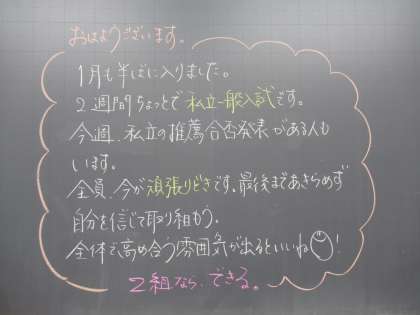 おはようございます。
1月も半ばに入りました。
2週間ちょっとで私立一般入試です。
今週、私立の推薦合否発表がある人も
います。
全員、今が頑張りどきです。最後まであきらめず
自分を信じて取り組もう。
全体で高め合う雰囲気が出るといいね!
2組なら、できる。